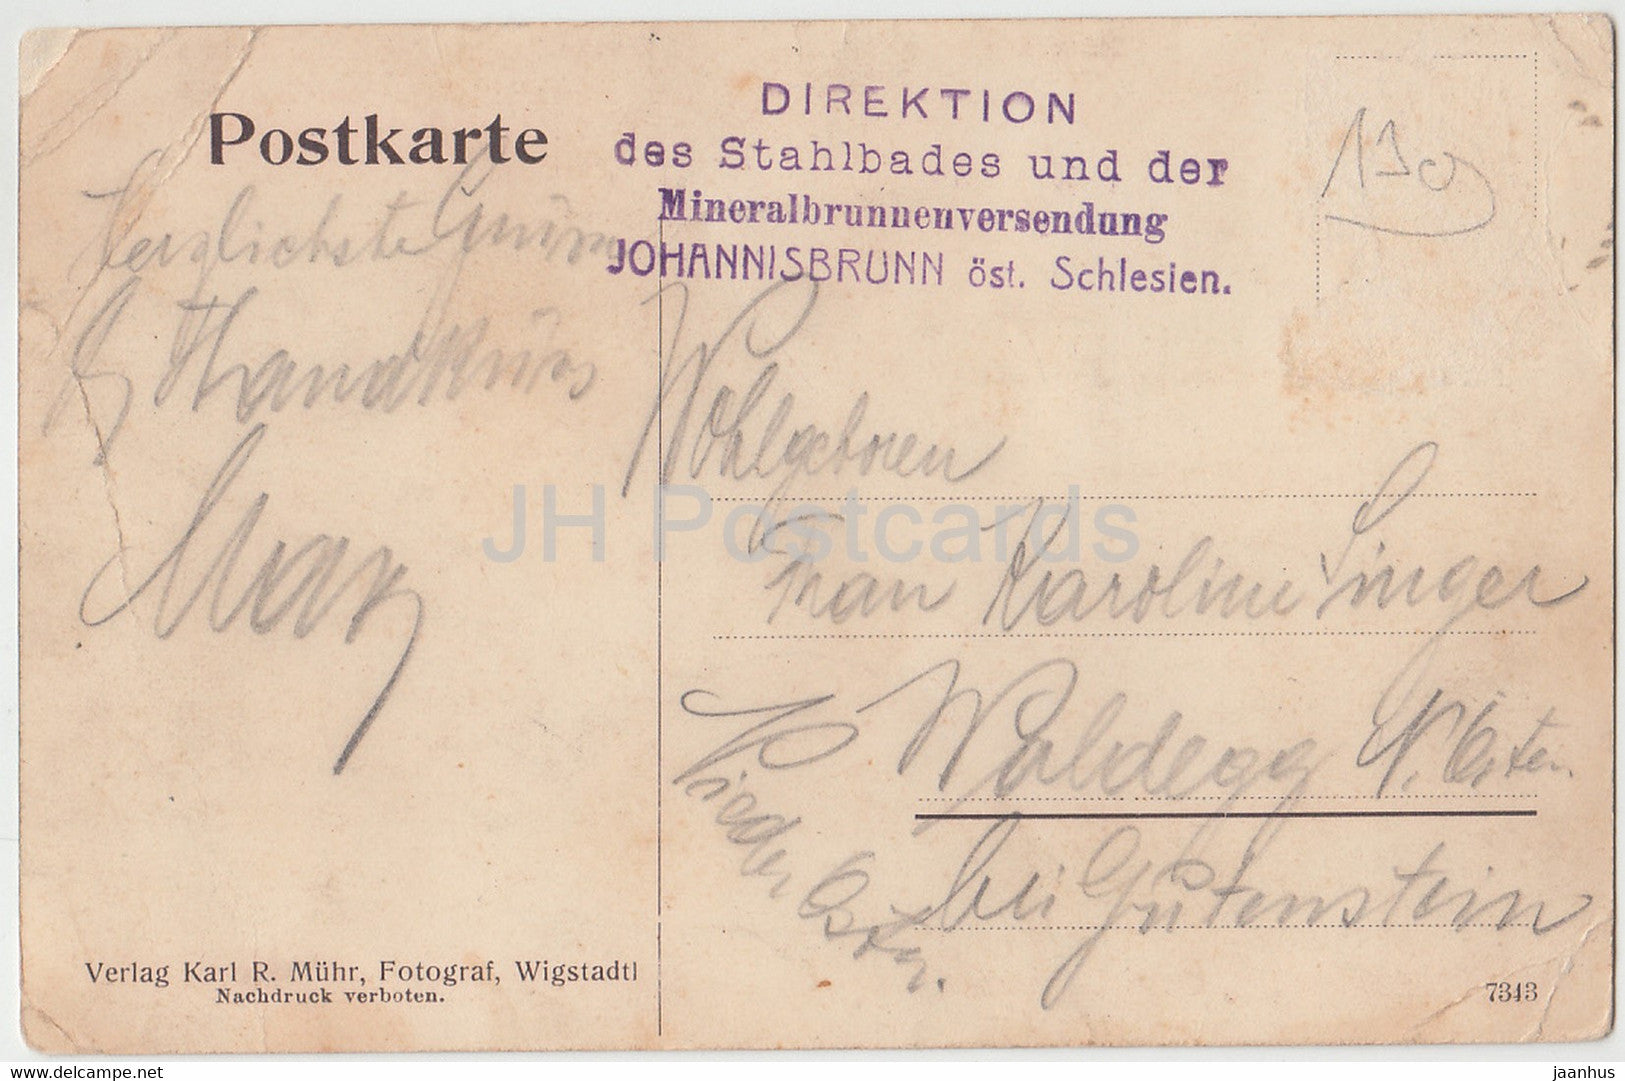 Postkarte
DIREKTION
des Stahlbades und der
Mineralbrunnenversendung
JOHANNISBRUNN öst. Schlesien.
130
Herzlichste Grüsse
Handküss
Max
Wohlgeboren
Frau Karoline Singer
Waldegg N. Östen.
bei Gutenstein
Nieder Östr.
Verlag Karl R. Mühr, Fotograf, Wigstadtl
Nachdruck verboten.
7343
JH Postcards
hippostcard.com
jaanhus